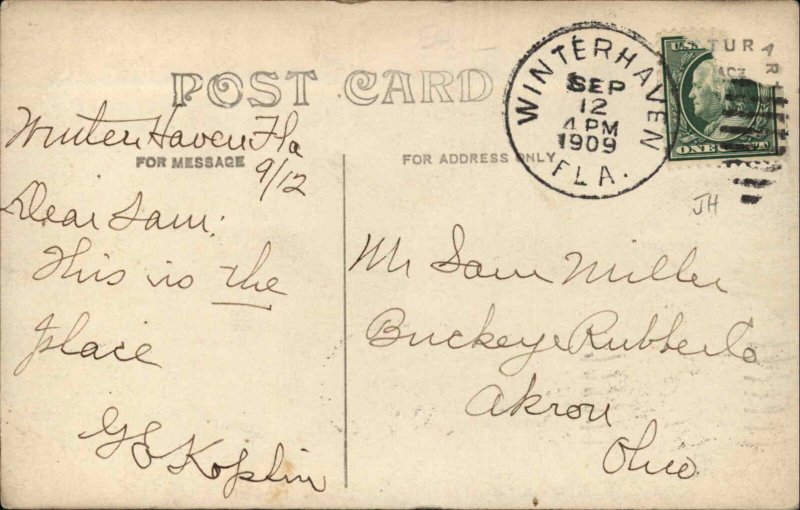 POST CARD
WINTERHAVEN
SEP
12
4 PM
1909
FLA.
U.S.
TUR
ONE CENT
JH
FOR MESSAGE
FOR ADDRESS ONLY
Winter Haven Fla
9/12
Dear Sam:
This is the
place
G E Koplin
Mr Sam Miller
Buckeye Rubber Co
Akron
Ohio